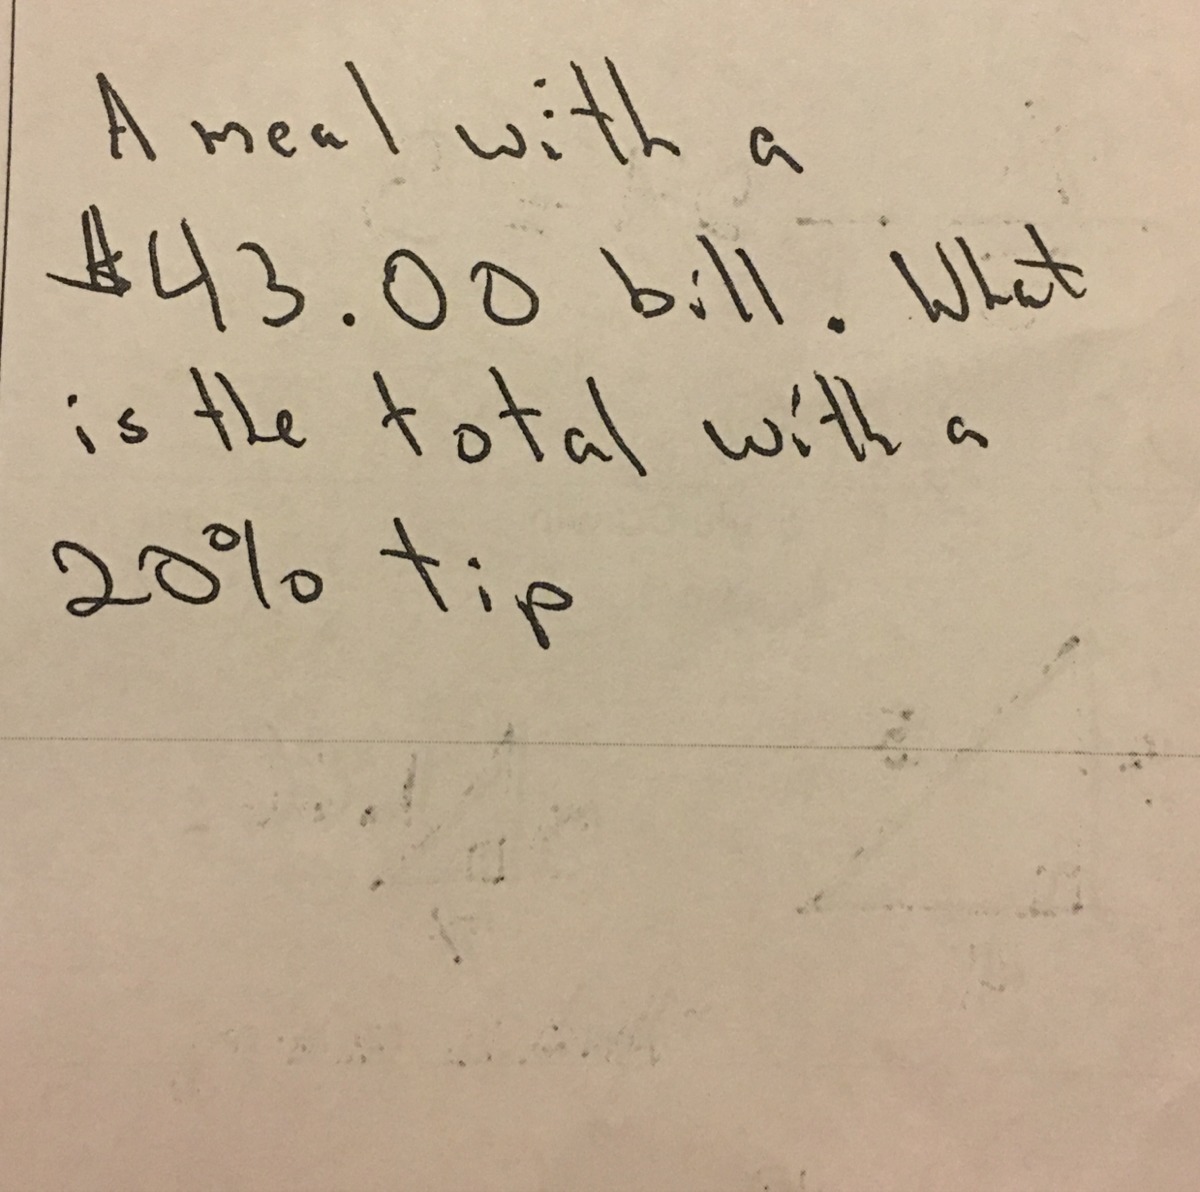 A meal with a
$43.00 bill. What
is the total with a
20% tip